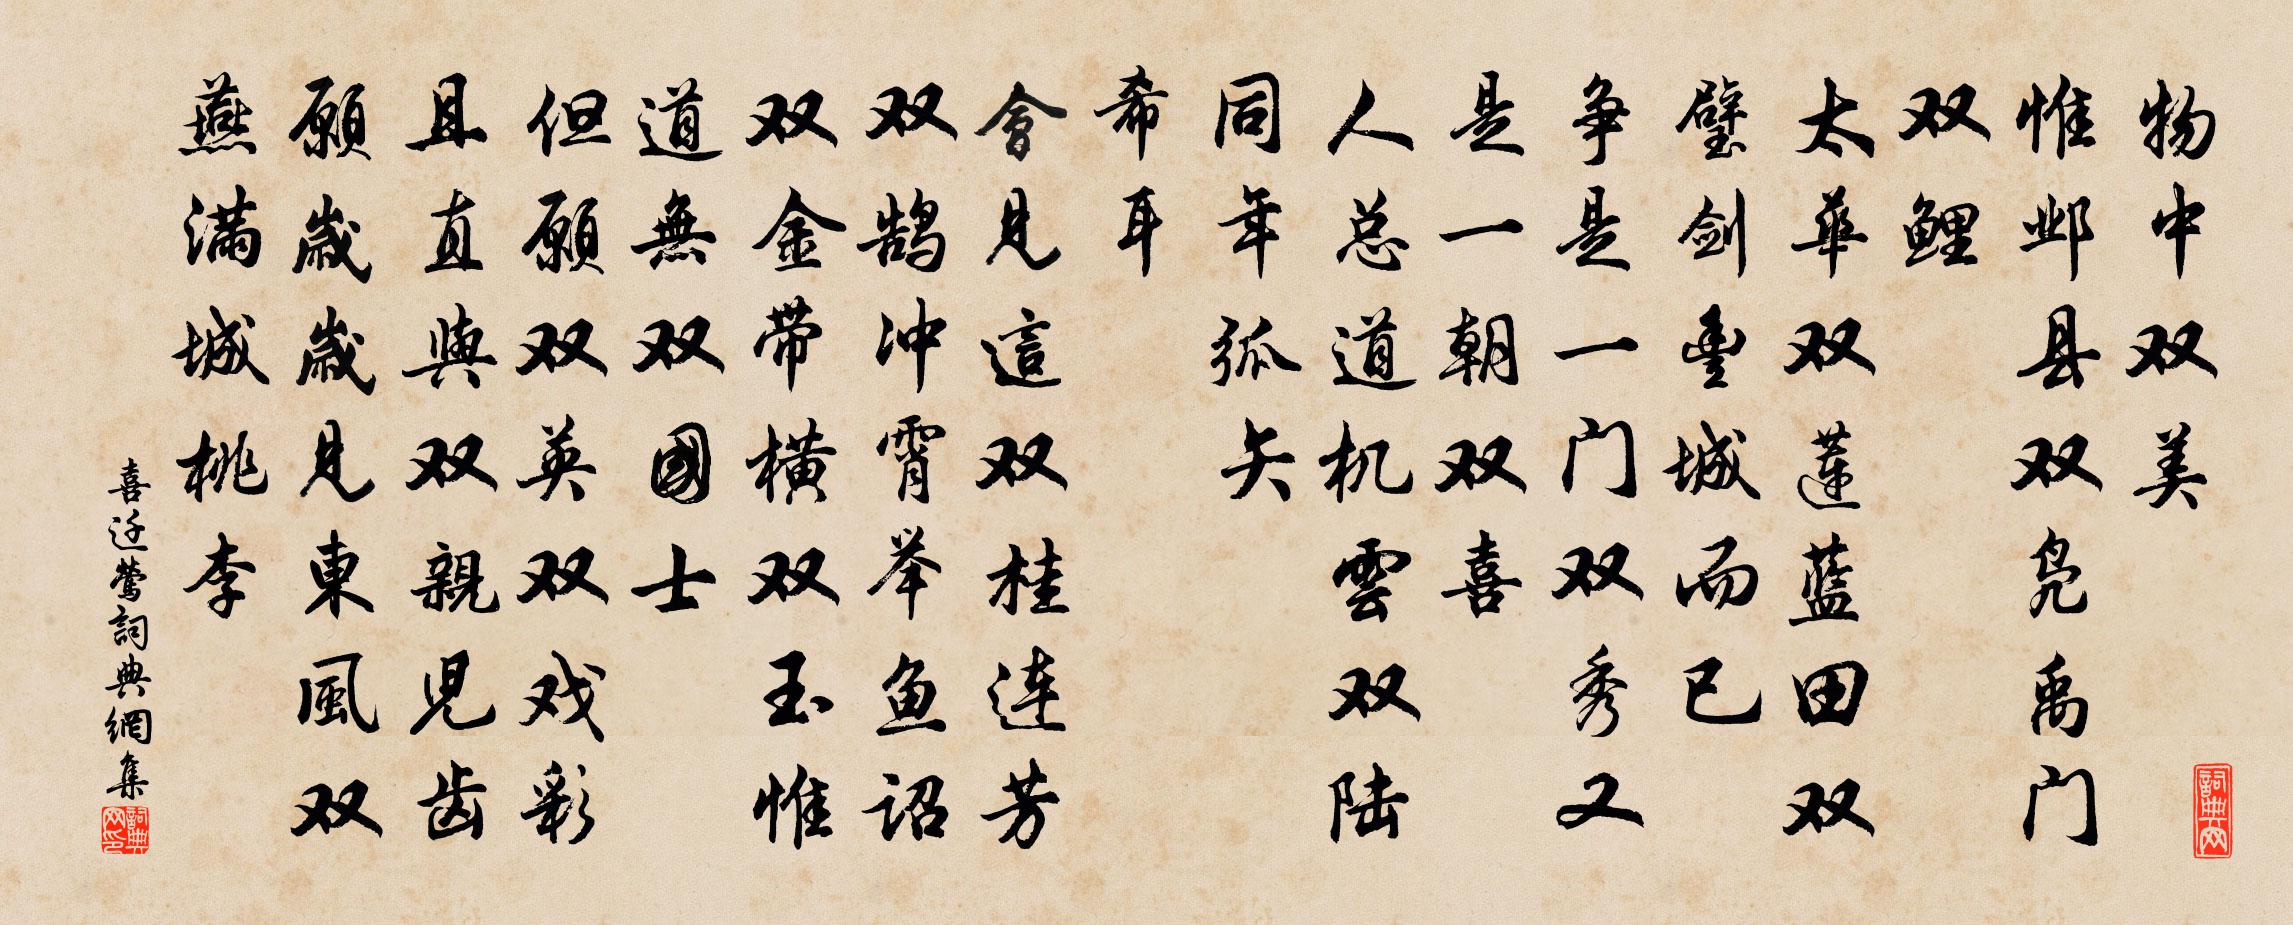 物中双美
惟邺县双凫禹门
双鲤
太華双蓮蓝田双
璧剑豊城而已
争是一门双秀又
是一朝双喜
人总道机雲双陆
同年弧矢
希耳
會見這双桂连芳
双鹄冲霄举鱼诏
双金带横双玉惟
道無双國士
但願双英双戏彩
且直與双親児齿
願歲歲見東風双
燕满城桃李
喜迁鶯詞典網集
詞典网
詞典网印